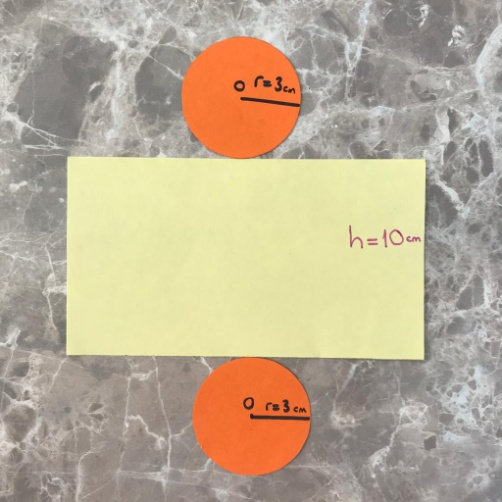 O r=3cm
h=10cm
O r=3cm